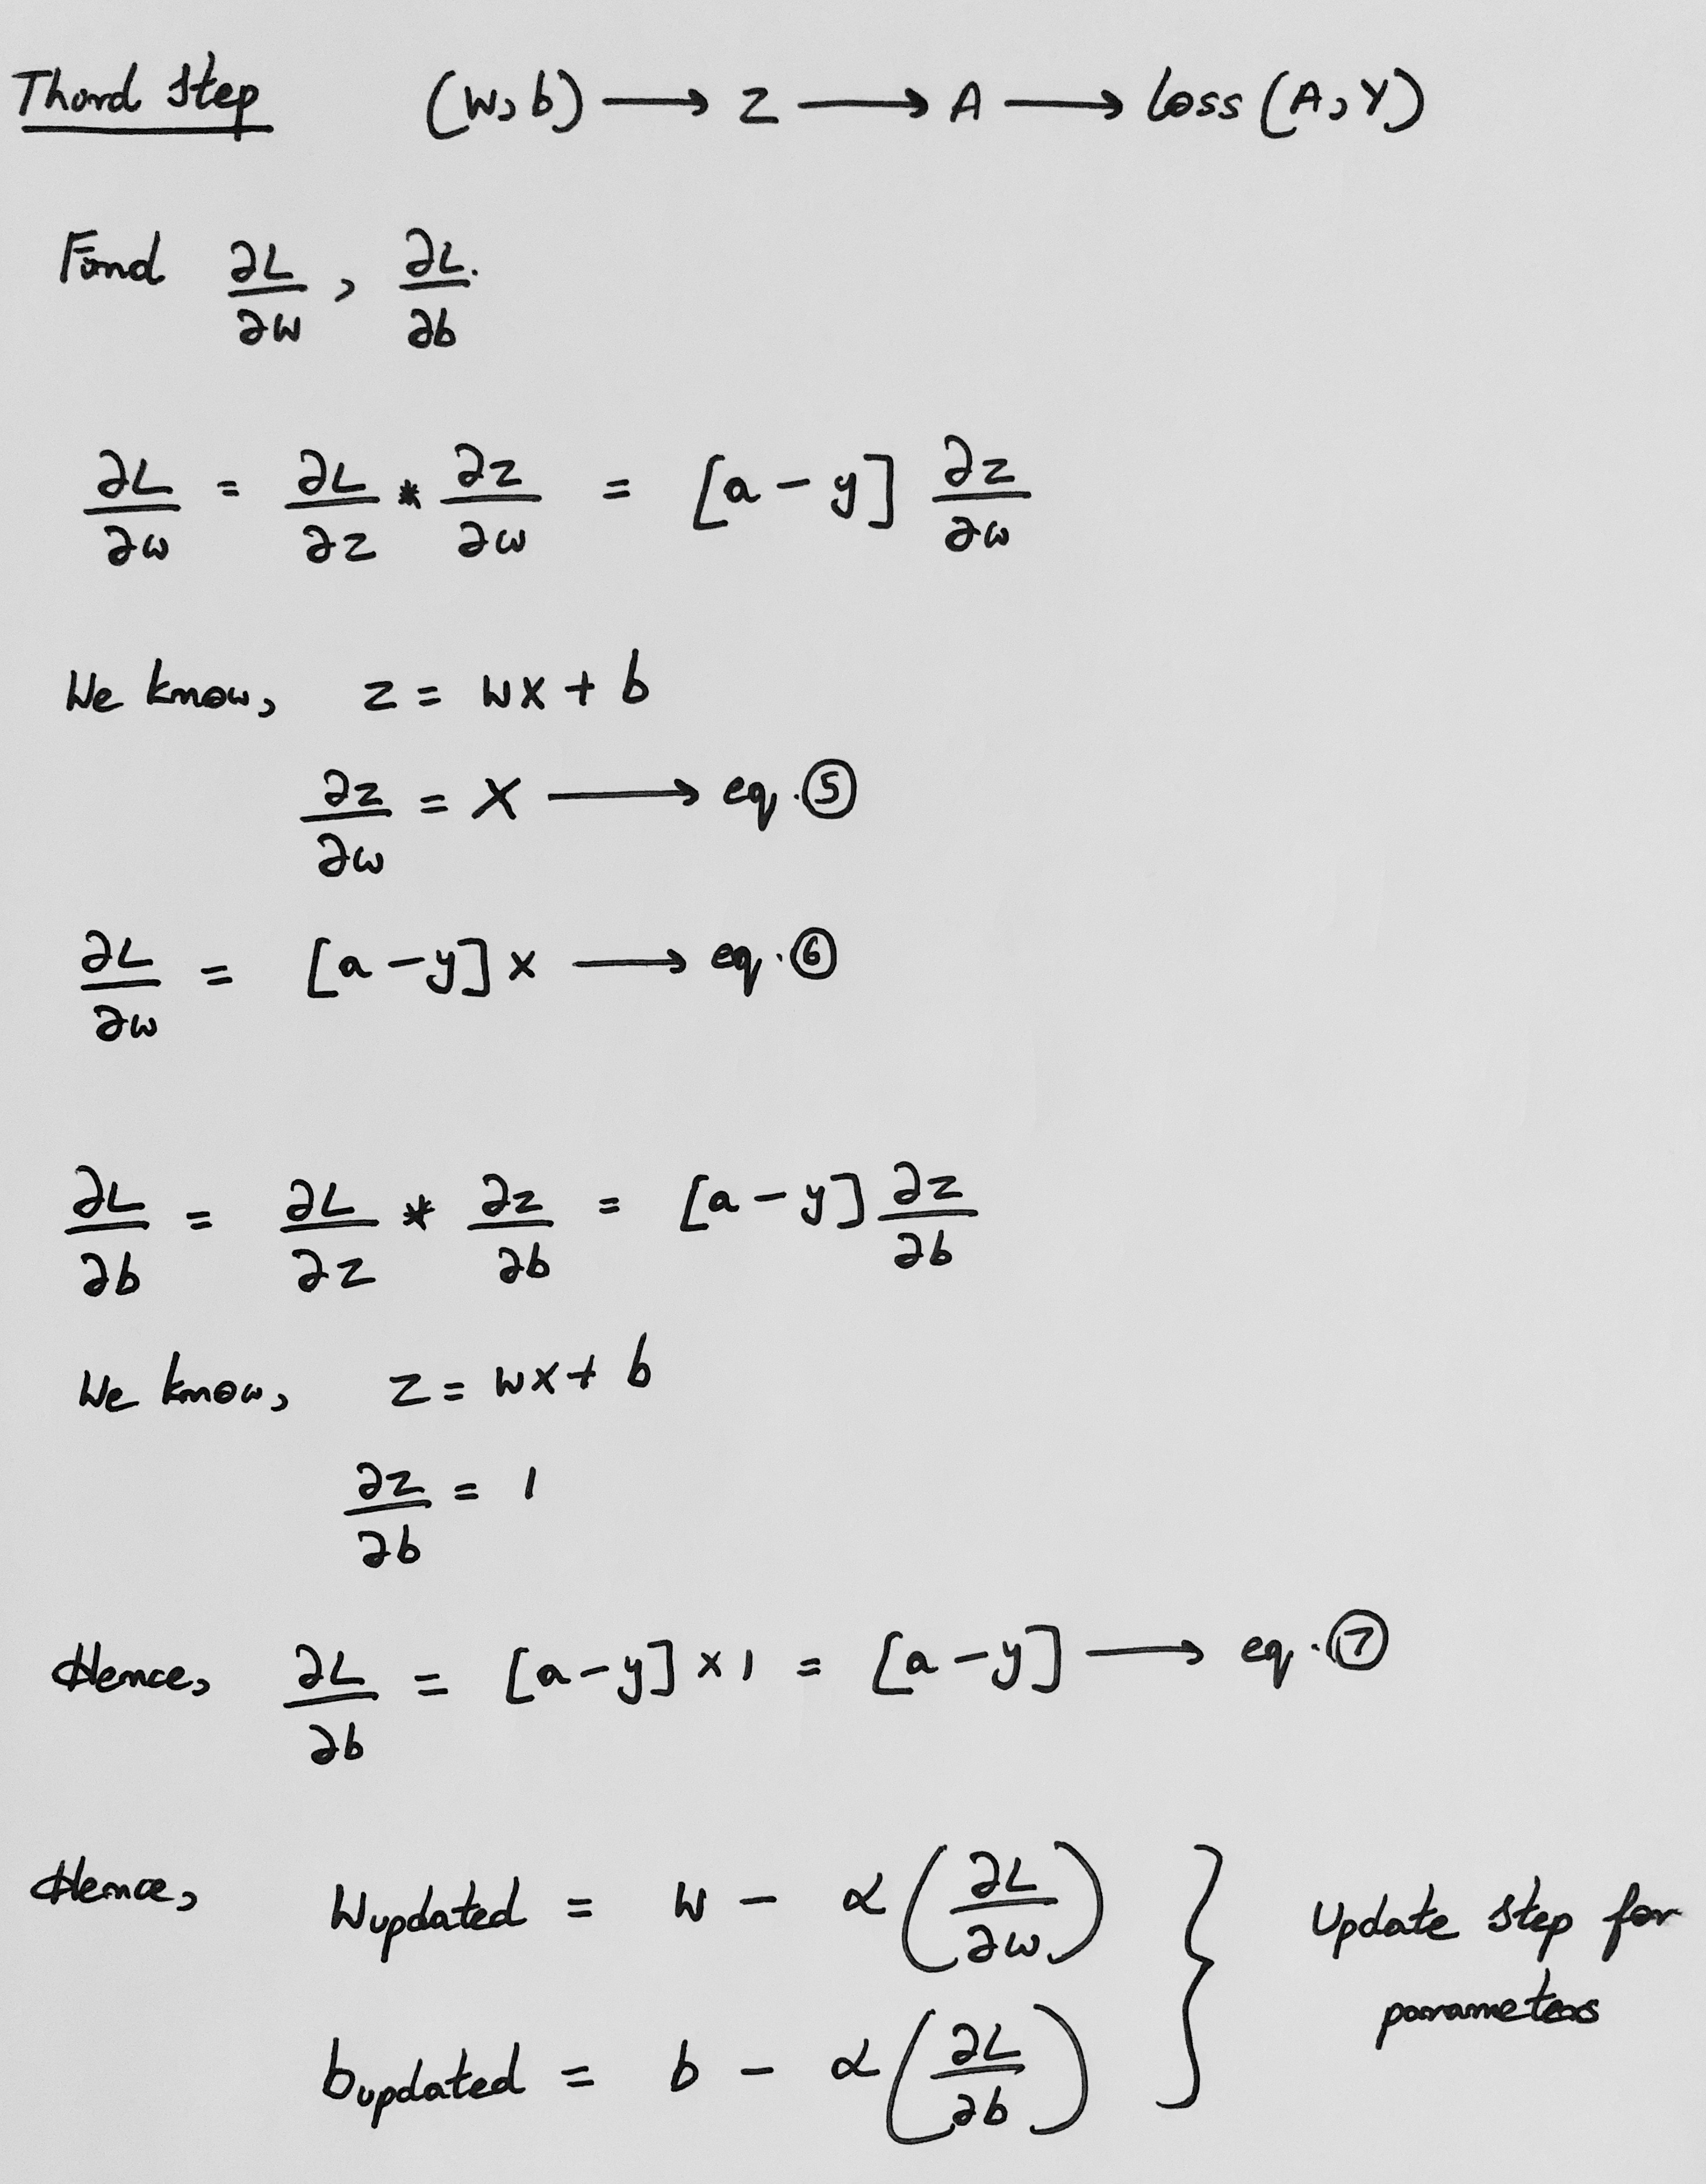 Third Step (W, b) → Z → A → Loss (A, Y)
Find ∂L/∂w , ∂L/∂b
∂L/∂w = ∂L/∂z * ∂z/∂w = [a - y] ∂z/∂w
We know, z = wx + b
∂z/∂w = x → eq. ⑤
∂L/∂w = [a - y] x → eq. ⑥
∂L/∂b = ∂L/∂z * ∂z/∂b = [a - y] ∂z/∂b
We know, z = wx + b
∂z/∂b = 1
Hence, ∂L/∂b = [a - y] × 1 = [a - y] → eq. ⑦
Hence, W updated = W - α (∂L/∂w)
b updated = b - α (∂L/∂b)
} Update step for
parameters